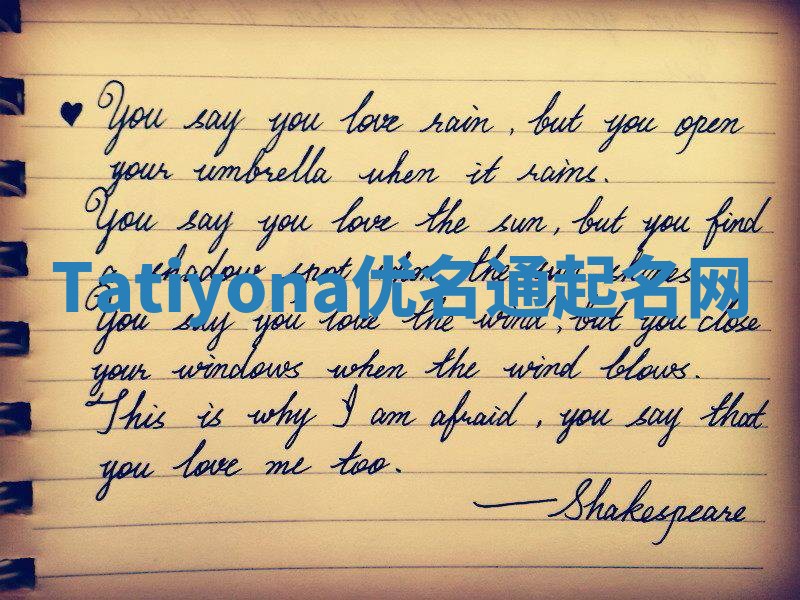 ♥ You say you love rain, but you open
your umbrella when it rains.
You say you love the sun, but you find
a shadow spot when the sun shines.
Tatiyona优名通起名网
You say you love the wind, but you close
your windows when the wind blows.
This is why I am afraid, you say that
you love me too.
—Shakespeare